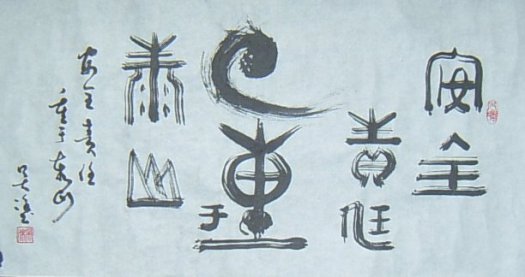 安全
责任
重于
泰山
安全责任
重于泰山